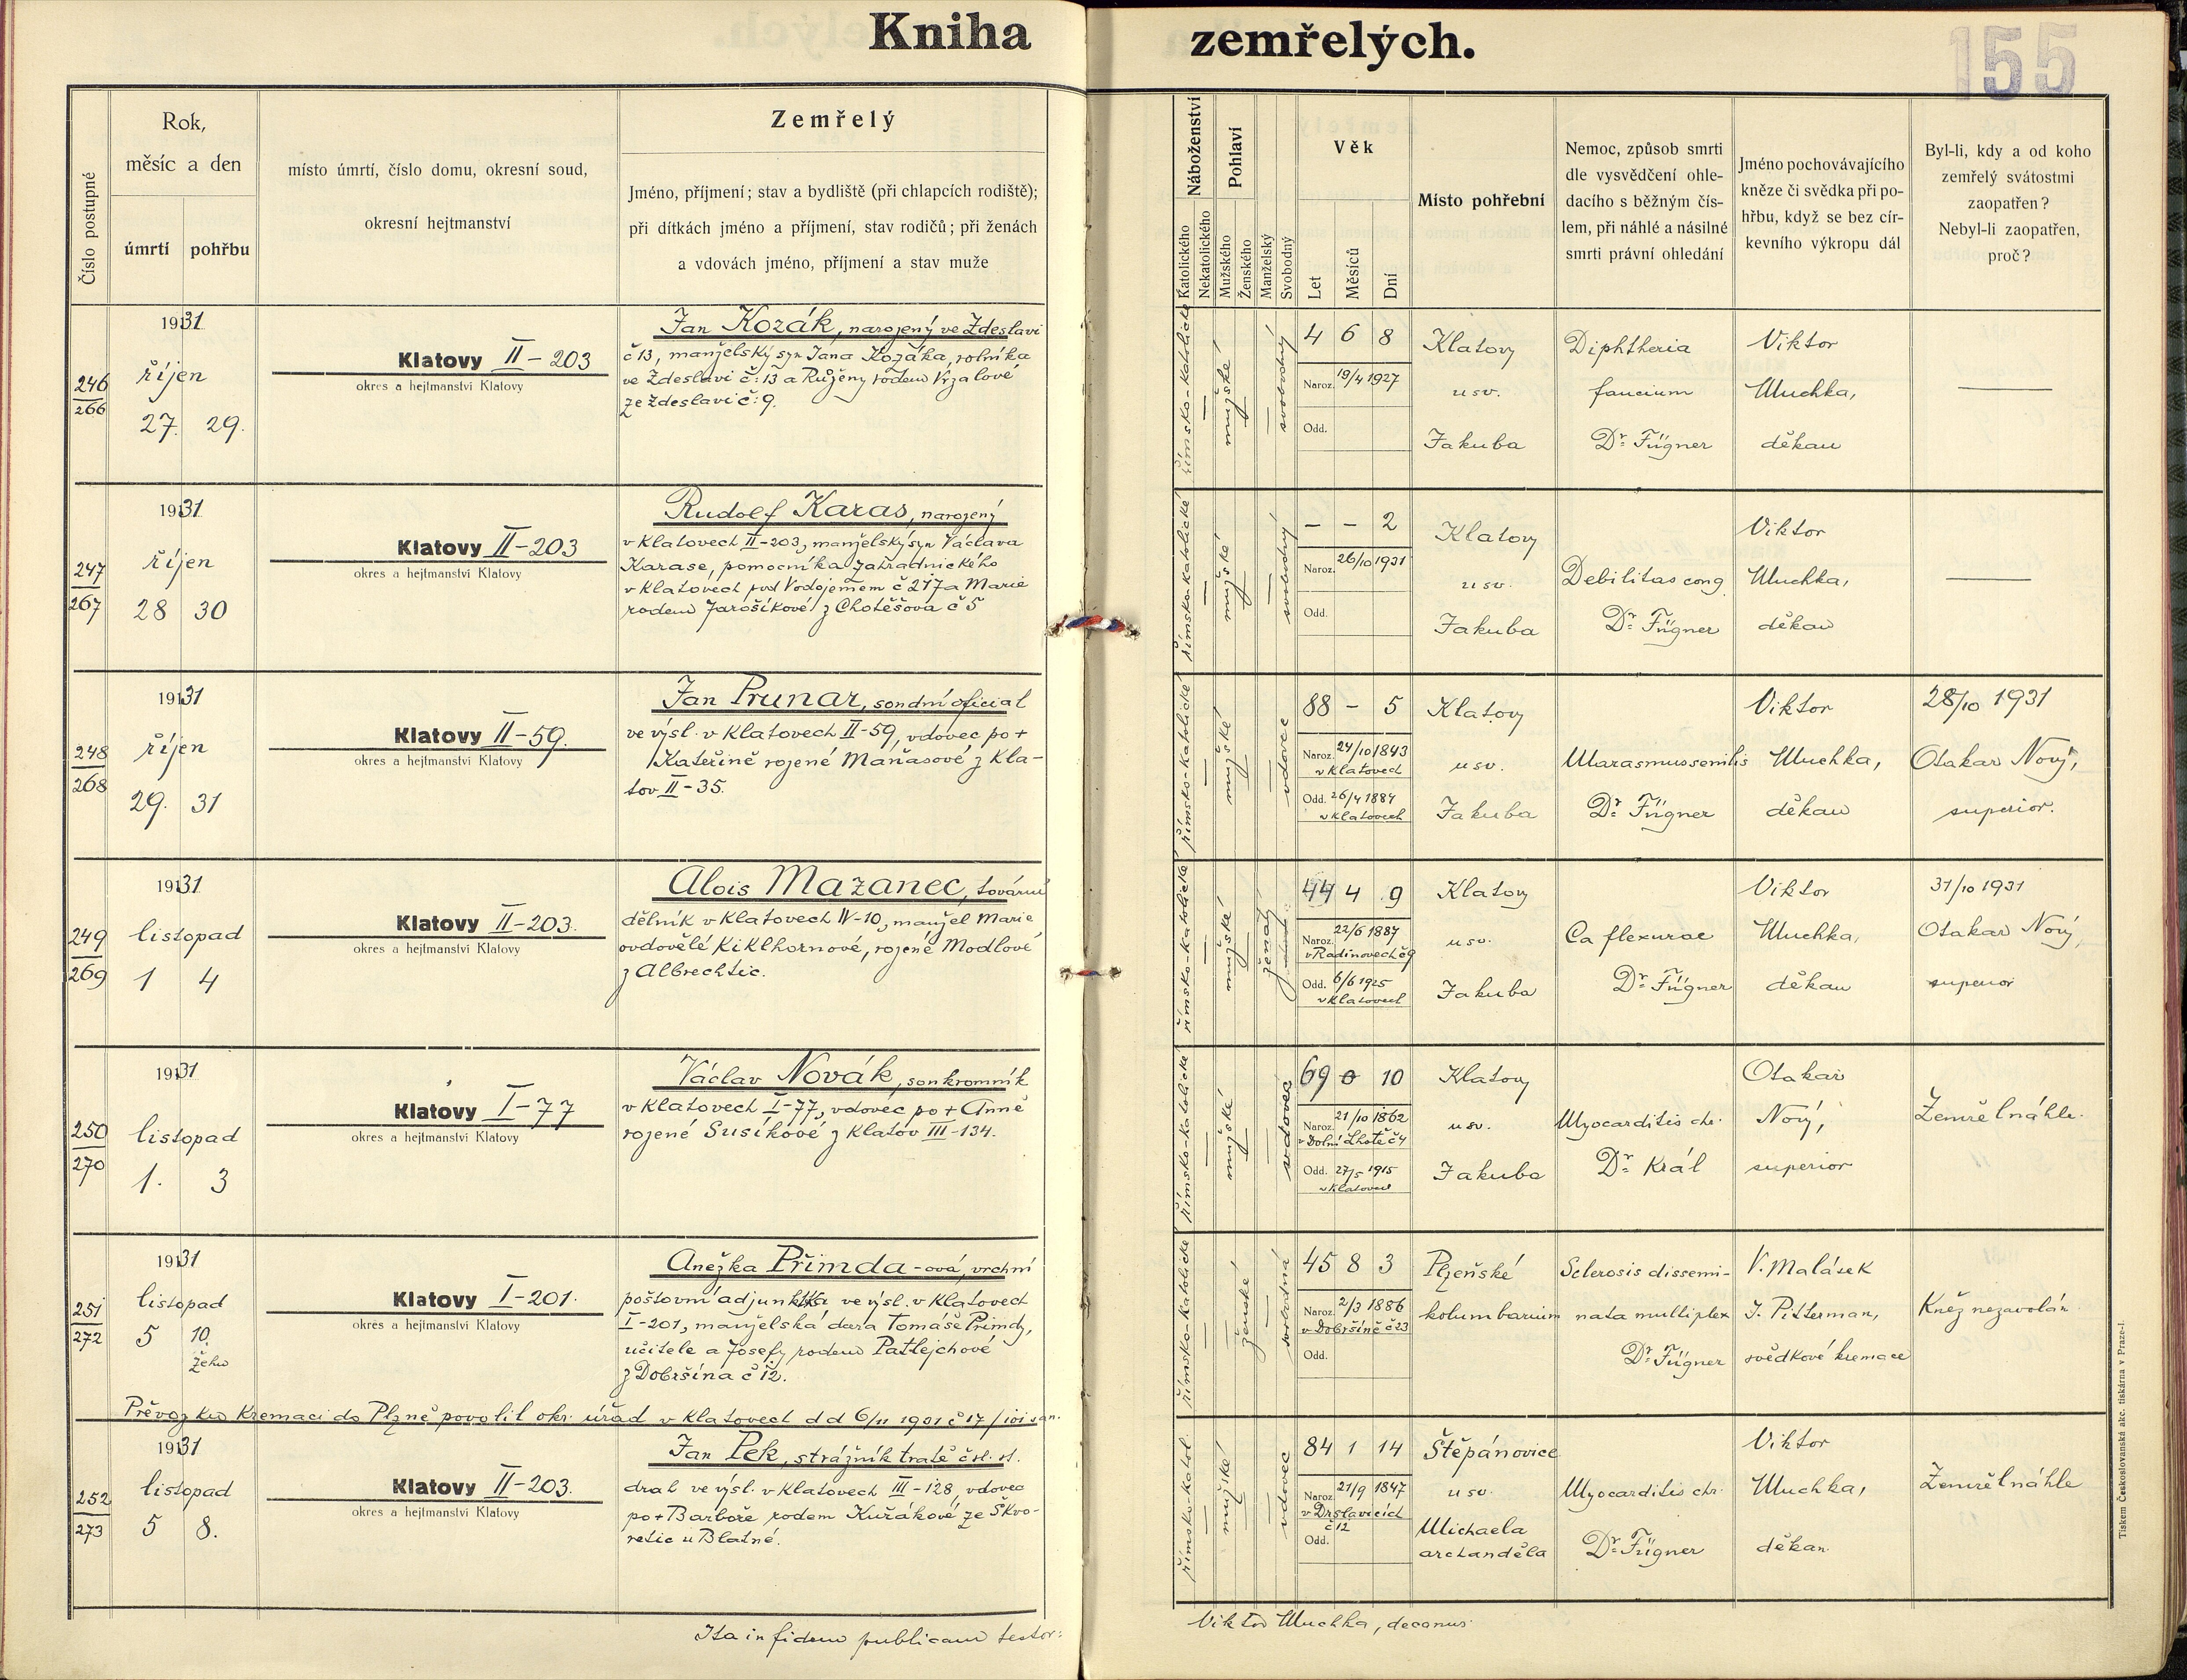 Kniha zemřelých.
155
Číslo postupné
Rok,
měsíc a den
úmrtí
pohřbu
místo úmrtí, číslo domu, okresní soud,
okresní hejtmanství
Zemřelý
Jméno, příjmení; stav a bydliště (při chlapcích rodiště);
při dítkách jméno a příjmení, stav rodičů; při ženách
a vdovách jméno, příjmení a stav muže
Náboženství
Katolického
Nekatolického
Pohlaví
Mužského
Ženského
Manželský
Svobodný
Věk
Let
Měsíců
Dní
Místo pohřební
Nemoc, způsob smrti
dle vysvědčení ohle-
dacího s běžným čís-
lem, při náhlé a násilné
smrti právní ohledání
Jméno pochovávajícího
kněze či svědka při po-
hřbu, když se bez cír-
kevního výkropu dál
Byl-li, kdy a od koho
zemřelý svátostmi
zaopatřen?
Nebyl-li zaopatřen,
proč?
246
266
1931
říjen
27. 29.
Klatovy II-203
okres a hejtmanství Klatovy
Jan Kozák, narozený ve Zdeslavi
č 13, manželský syn Jana Kozáka, rolníka
ve Zdeslavi č: 13 a Růženy rodem Vrzalové
ze Zdeslavi č: 9.
římsko-katolické
mužské
svobodný
4 6 8
Naroz. 19/4 1927
Odd.
Klatovy
u sv.
Jakuba
Diphtheria
faucium
Dr. Fügner
Viktor
Muchka,
děkan
247
267
1931
říjen
28 30
Klatovy II-203
okres a hejtmanství Klatovy
Rudolf Karas, narozený
v Klatovech II-203, manželský syn Václava
Karase, pomocníka zahradnického
v Klatovech pod Vodojemem č 217 a Marie
rodem Jarošíkové z Chotěšova č 5
římsko-katolické
mužské
svobodný
- - 2
Naroz. 26/10 1931
Odd.
Klatovy
u sv.
Jakuba
Debilitas cong
Dr. Fügner
Viktor
Muchka,
děkan
248
268
1931
říjen
29. 31
Klatovy II-59.
okres a hejtmanství Klatovy
Jan Prunar, soudní oficial
ve výsl. v Klatovech II-59, vdovec po +
Kateřině rojené Maňasové z Kla-
tov II-35.
římsko-katolické
mužské
vdovec
88 - 5
Naroz. 24/10 1843
v Klatovech
Odd. 26/4 1884
v Klatovech
Klatovy
u sv.
Jakuba
Marasmus senilis
Dr. Fügner
Viktor
Muchka,
děkan
28/10 1931
Otakar Nový,
superior.
249
269
1931
listopad
1 4
Klatovy II-203.
okres a hejtmanství Klatovy
Alois Mazanec, tovární
dělník v Klatovech IV-10, manžel Marie
ovdovělé Kiklhornové, rojené Modlové
z Albrechtic.
římsko-katolické
mužské
ženatý
44 4 9
Naroz. 22/6 1887
v Radinovech č 9
Odd. 6/6 1925
v Klatovech
Klatovy
u sv.
Jakuba
Ca flexurae
Dr. Fügner
Viktor
Muchka,
děkan
31/10 1931
Otakar Nový,
superior
250
270
1931
listopad
1. 3
Klatovy I-77
okres a hejtmanství Klatovy
Václav Novák, soukromník
v Klatovech I-77, vdovec po + Anně
rojené Susíkové z Klatov III-134.
římsko-katolické
mužské
vdovec
69 0 10
Naroz. 21/10 1862
v Dolní Lhotě č 4
Odd. 27/5 1915
v Klatovech
Klatovy
u sv.
Jakuba
Myocarditis chr.
Dr. Král
Otakar
Nový,
superior
Zemřel náhle.
251
272
1931
listopad
5 10.
žehu
Klatovy I-201.
okres a hejtmanství Klatovy
Anežka Přimda-ová, vrchní
poštovní adjunktka ve výsl. v Klatovech
I-201, manželská dcera Tomáše Přimdy,
učitele a Josefy rodem Patlejchové
z Dobršína č 12.
římsko-katolické
ženské
svobodná
45 8 3
Naroz. 2/3 1886
v Dobršíně č 23
Odd.
Plzeňské
kolumbarium
Sclerosis dissemi-
nata multiplex
Dr. Fügner
V. Malásek
J. Pitterman,
svědkové kremace
Kněz nezavolán.
Převoz ku kremaci do Plzně povolil okr. úřad v Klatovech d d 6/11 1931 č 17/101 san.
252
273
1931
listopad
5 8.
Klatovy II-203.
okres a hejtmanství Klatovy
Jan Pek, strážník tratě čsl. st.
drah ve výsl. v Klatovech III-128, vdovec
po + Barboře rodem Kuřákové ze Škvo-
retic u Blatné.
římsko-katol.
mužské
vdovec
84 1 14
Naroz. 21/9 1847
v Drslavicích
č 12
Odd.
Štěpánovice
u sv.
Michaela
archanděla
Myocarditis chr.
Dr. Fügner
Viktor
Muchka,
děkan.
Zemřel náhle
Ita in fidem publicam testor: Viktor Muchka, decanus
Tiskem Československá akc. tiskárna v Praze-I.